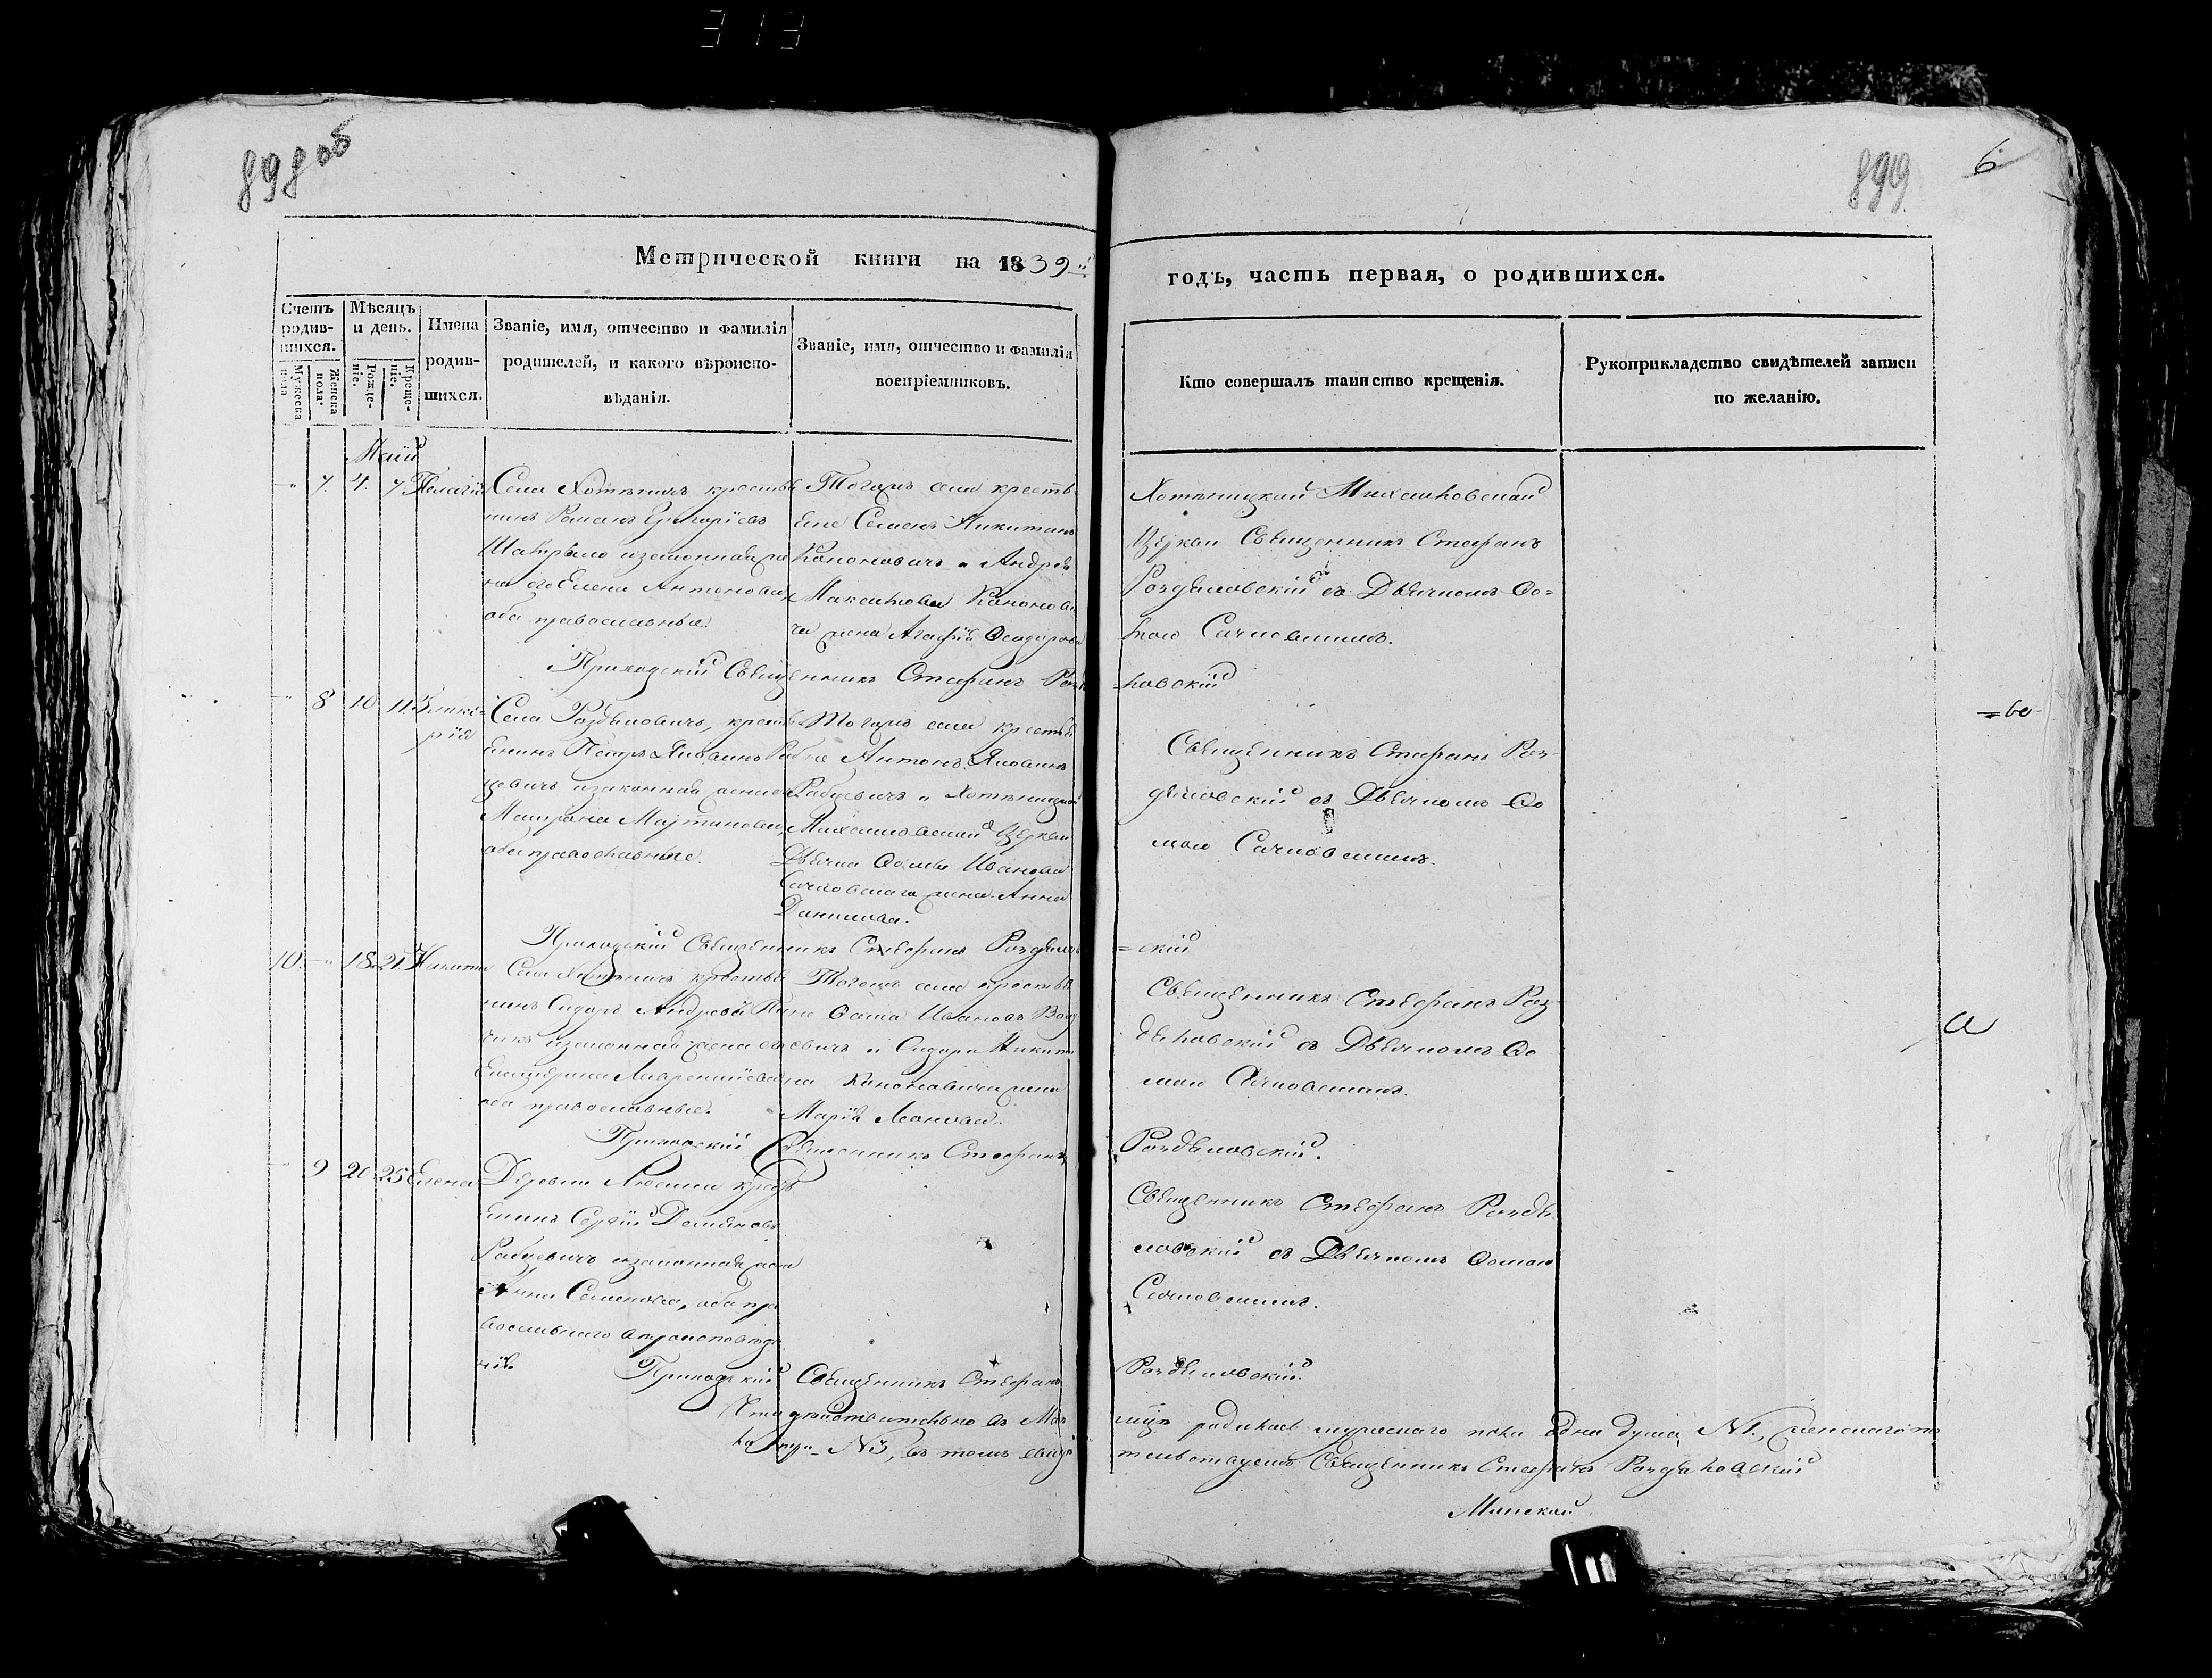 313
898 об
899
6
Метрической книги на 1839й
годъ, часть первая, о родившихся.
Счетъ родив-шихся.
Мужеска пола
Женска пола.
Мѣсяцъ и день.
Рожде-ніе.
Креще-ніе.
Имена родив-шихся.
Званіе, имя, отчество и фамилія
родителей, и какого вѣроиспо-
вѣданія.
Званіе, имя, отчество и фамилія
воспріемниковъ.
Кто совершалъ таинство крещенія.
Рукоприкладство свидѣтелей записи
по желанію.
Маій
7. 4. 7 Пелагія
Села Хотыничъ крестья
нинъ Романъ Григоріевъ
изаконная же
на его Елена Антонова
оба православные.
Тогожъ села крестья
не Семенъ Никитинъ
Кононовичъ и Андрея
Максимова Кононови
ча жена Агафія Ѳеодорова
Хотыницкой Михайловской
Церкви Священникъ Стефанъ
Роздяловскій съ Дьячкомъ Ѳо=
мою Сачковскимъ.
Приходскій Священникъ Стефанъ Розд
=ловскій
8 10 11. Глике=
рія
Села Роздяловичъ, крестья
енинъ Петръ Яковлевъ Раб
цевичъ изаконная жена
оба православные.
Тогожъ села крестья
не Антонъ Яковлевъ
Рабцевичъ и Хотыницкой
Михайловской Церкви
Дьячка Ѳомы Иванова
Сачковскаго жена Анна
Данилова.
Священникъ Стефанъ Роз-
дяловскій съ Дьячкомъ Ѳо
мою Сачковскимъ.
=во
Приходскій Священникъ Стефанъ Роздялов
=скій
10. 18. 21. Никита
Села Хотыничъ крестья
нинъ Сидоръ Андреевъ
изаконная жена его
Екатерина Лаврентіева
оба православные.
Тогожъ села крестья
не Ѳома Ивановъ
евичъ и Сидора Никити
на Кононовича жена
Марія
Священникъ Стефанъ Роз
дяловскій съ Дьячкомъ Ѳо
мою Сачковскимъ.
а
Приходскій Священникъ Стефанъ
Роздяловскій.
9 20 25 Елена
Деревни Любани крестья
енинъ Сергій Демьяновъ
Рабцевичъ изаконная жена
Анна Семенова, оба пра
вославнаго вѣроисповѣда
нія.
Священникъ Стефанъ Роздя
ловскій съ Дьячкомъ Ѳомою
Сачковскимъ.
Приходскій Священникъ Стефанъ
Роздяловскій.
Что дѣйствительно въ Маѣ
мцѣ родилось мужескаго пола одна душа, №1., женскаго по
ла три №3, въ томъ свидѣ
тельствуемъ Священникъ Стефанъ Роздяловскій
Минской